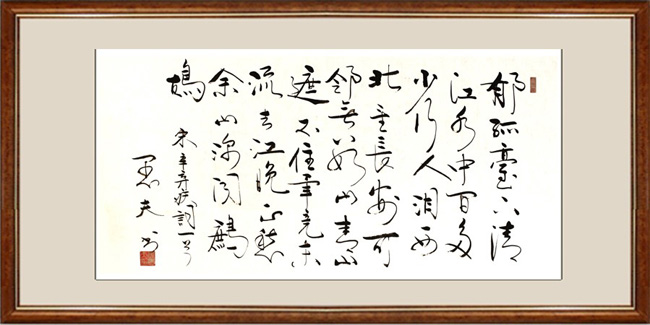 郁孤臺下清
江水中間多
少行人淚西
北望長安可
憐无数山青山
遮不住畢竟東
流去江晚正愁
余山深聞鷓
鴣
宋辛弃疾詞一首
夫书